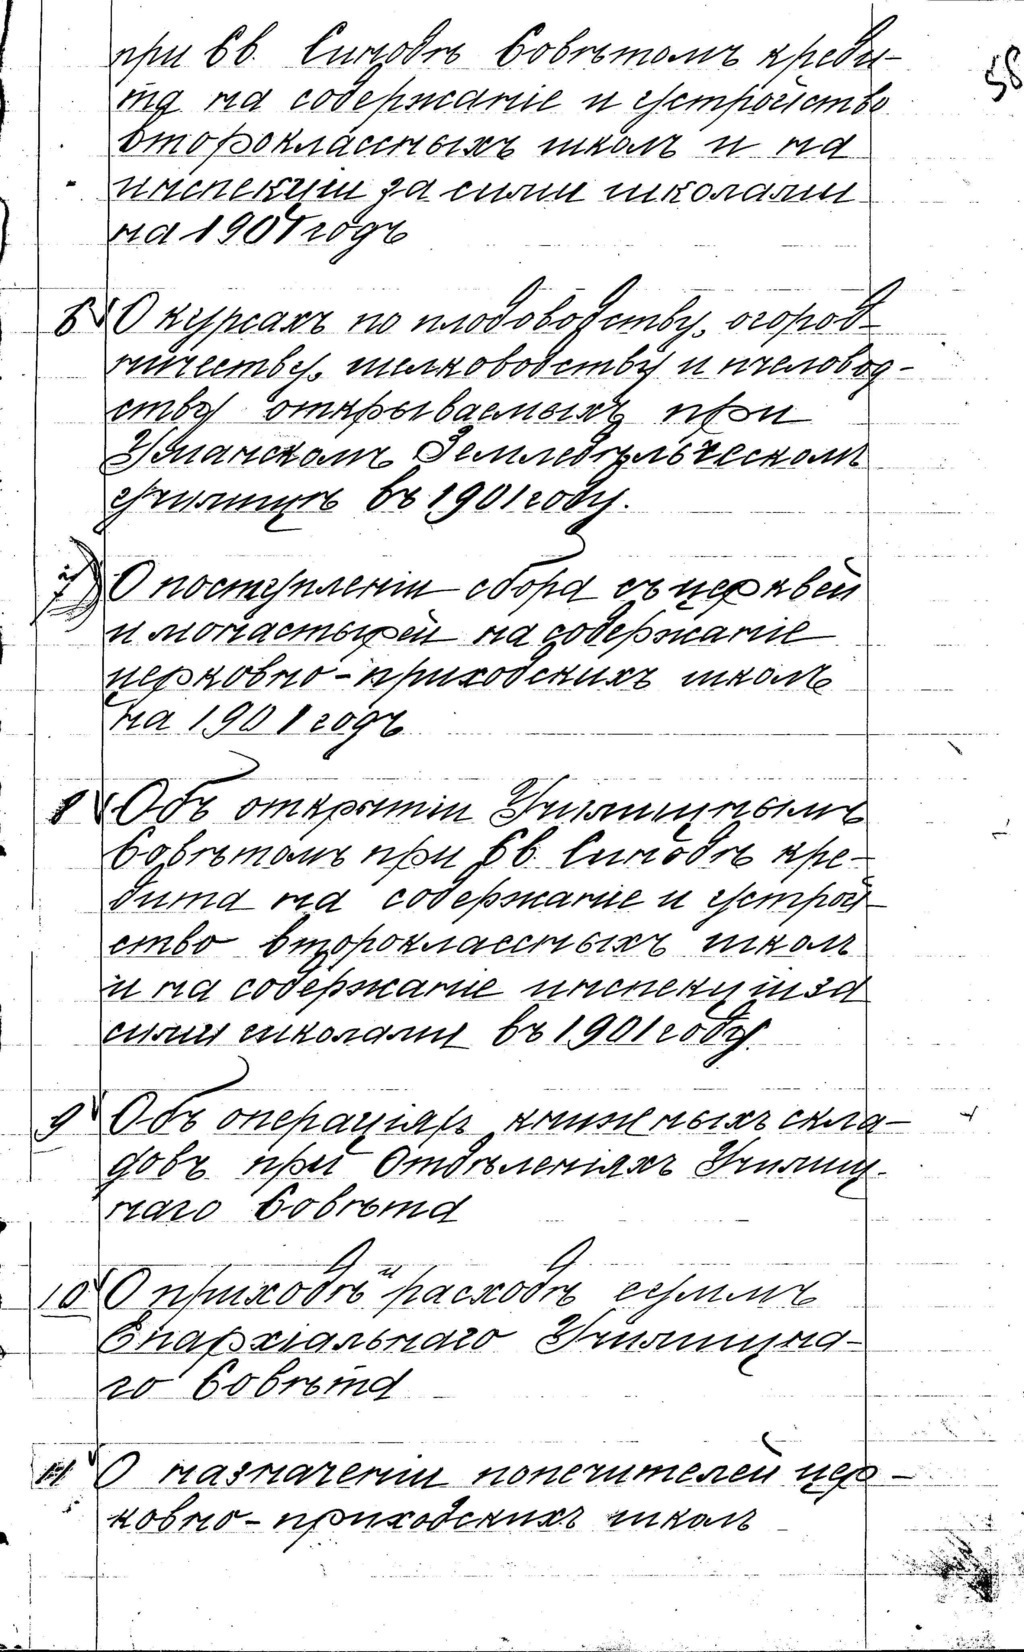 58
при Св. Синодѣ Совѣтомъ креди-
та на содержаніе и устройство
второклассныхъ школъ и на
инспекціи за сими школами
на 1901 годъ
6 О курсахъ по плодоводству, огород-
ничеству, шелководству и пчеловод-
ству открываемыхъ при
Уманскомъ Земледѣльческомъ
училищѣ въ 1901 году.
7 О поступленіи сбора съ церквей
и монастырей на содержаніе
церковно-приходскихъ школъ
на 1901 годъ
8 Объ открытіи Училищнымъ
Совѣтомъ при Св. Синодѣ кре-
дита на содержаніе и устрой-
ство второклассныхъ школъ
и на содержаніе инспекціи за
сими школами въ 1901 году.
9 Объ операціяхъ книжныхъ скла-
довъ при Отдѣленіяхъ Училищ-
наго Совѣта
10 О приходѣ и расходѣ суммъ
Епархіальнаго Училищна-
го Совѣта
11 О назначеніи попечителей цер-
ковно-приходскихъ школъ